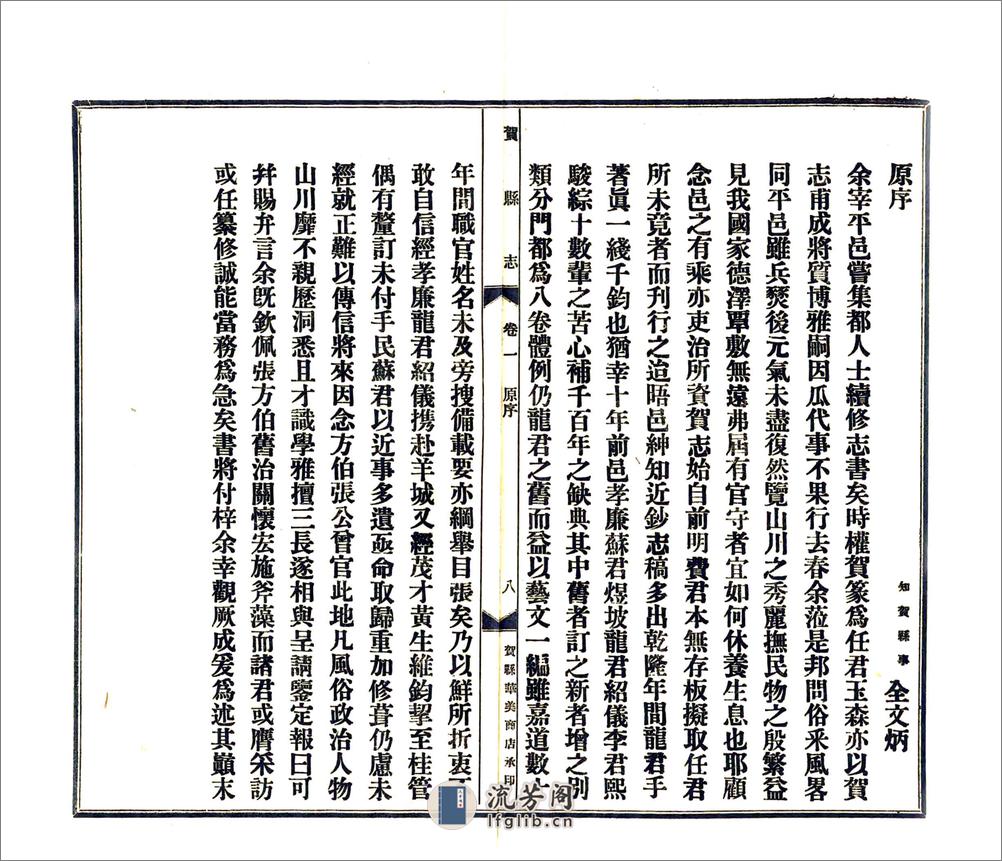 原序
知賀縣事 全文炳
余宰平邑嘗集都人士續修志書矣時權賀篆爲任君玉森亦以賀
志甫成將質博雅嗣因瓜代事不果行去春余蒞是邦問俗釆風畧
同平邑雖兵燹後元氣未盡復然覽山川之秀麗撫民物之殷繁益
見我國家德澤覃敷無遠弗屆有官守者宜如何休養生息也耶顧
念邑之有乘亦吏治所資賀志始自前明費君本無存板擬取任君
所未竟者而刊行之迨晤邑紳知近鈔志稿多出乾隆年間龍君手
著眞一綫千鈞也猶幸十年前邑孝廉蘇君煜坡龍君紹儀李君熙
駿綜十數輩之苦心補千百年之缺典其中舊者訂之新者增之別
類分門都爲八卷體例仍龍君之舊而益以藝文一編雖嘉道數十
賀縣志
卷一
原序
八
賀縣華美商店承印
年間職官姓名未及旁搜備載要亦綱舉目張矣乃以鮮所折衷不
敢自信經孝廉龍君紹儀携赴羊城又經茂才黃生維鈞挈至桂管
偶有釐訂未付手民蘇君以近事多遺亟命取歸重加修葺仍慮未
經就正難以傳信將來因念方伯張公曾官此地凡風俗政治人物
山川靡不親歷洞悉且才識學雅擅三長遂相與呈請鑒定報曰可
幷賜弁言余旣欽佩張方伯舊治關懷宏施斧藻而諸君或膺采訪
或任纂修誠能當務爲急矣書將付梓余幸觀厥成爰爲述其巔末
流芳阁
lfglib.cn